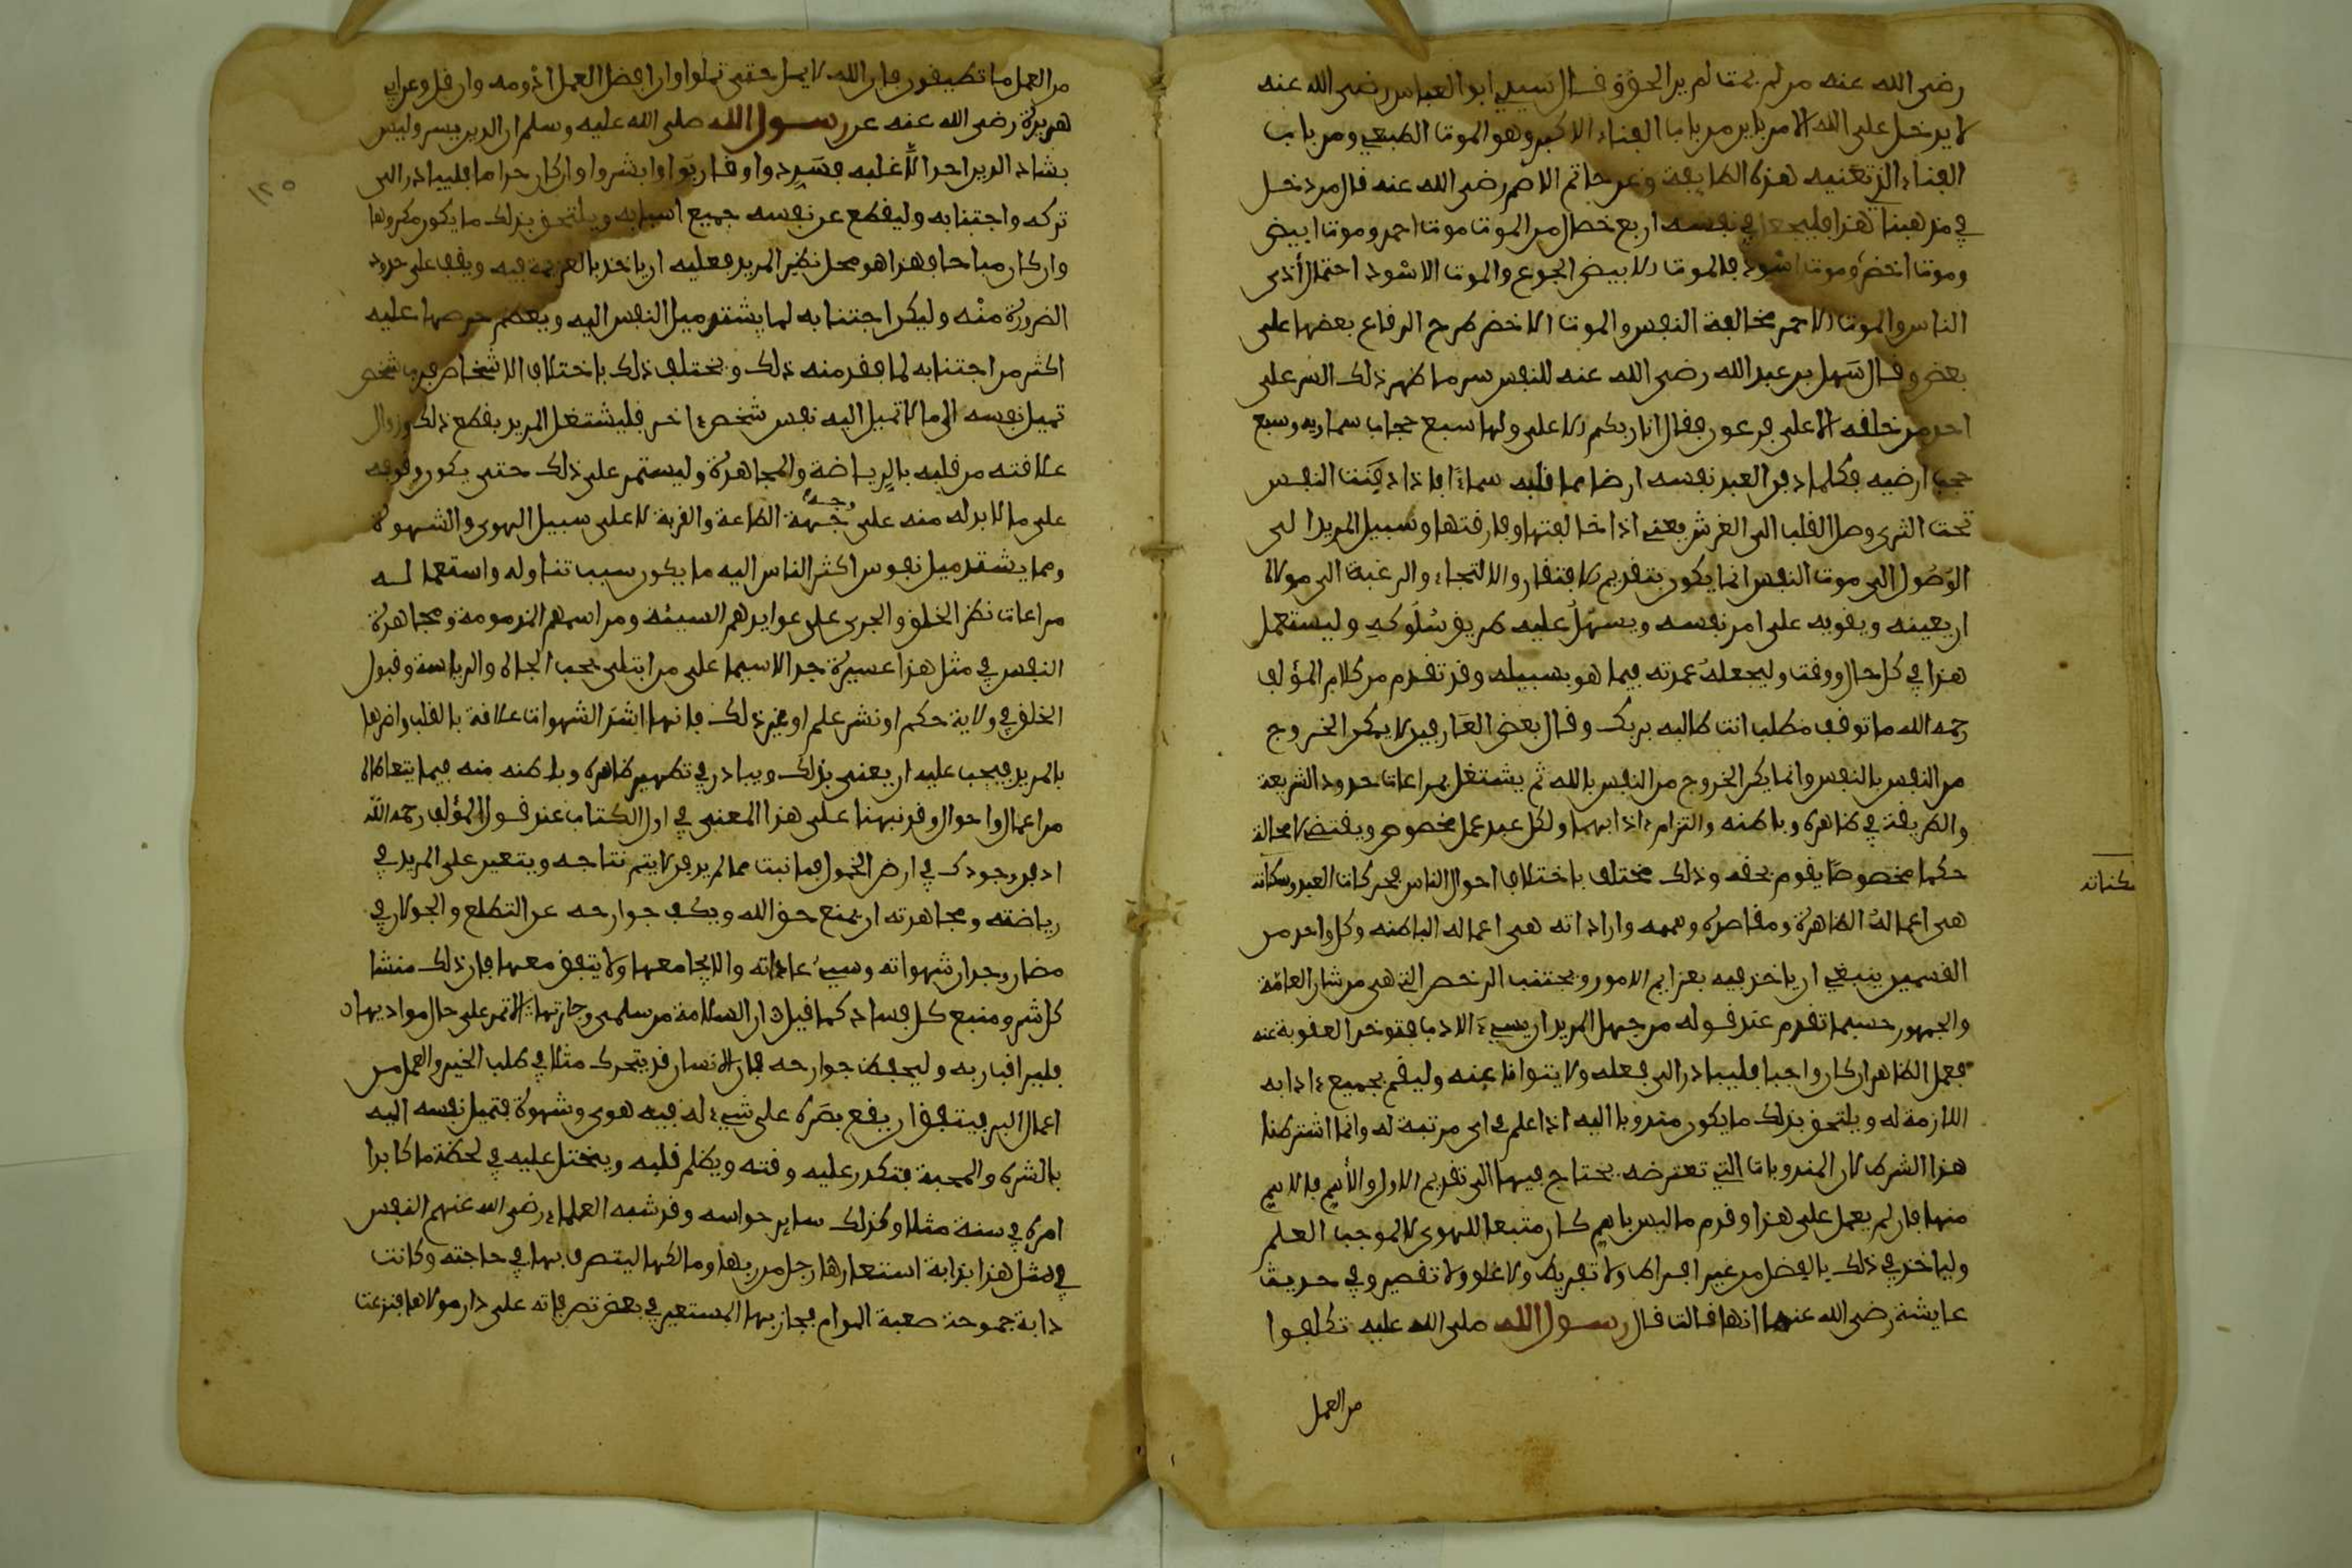 رضى الله عنه من لم يمت لم ير الحق وقال سيدي ابو العباس رضى الله عنه
لا يدخل على الله الا من بابين من باب الفناء الاكبر وهو الموت الطبيعي ومن باب
الفناء الذي تعنيه هذه الطايفة وعن حاتم الاصم رضى الله عنه قال من دخل
في مذهبنا هذا فليجعل في نفسه اربع خصال من الموت موت احمر وموت ابيض
وموت اخضر وموت اسود فالموت الابيض الجوع والموت الاسود احتمال أذى
الناس والموت الاحمر مخالفة النفس والموت الاخضر طرح الرقاع بعضها على
بعض وقال سهل بن عبد الله رضى الله عنه للنفس سر ما ظهر ذلك السر على
احد من خلقه الا على فرعون فقال انا ربكم الاعلى ولها سبع حجاب سماويه وسبع
حجب ارضيه فكلما دفن العبد نفسه ارضا سما قلبه سماءً فاذا دفنت النفس
تحت الثرى وصل القلب الى العرش يعني اذا خالفتها وفارقتها وسبيل المريد الى
الوصُول الى موت النفس انما يكون بتقديم الافتقار والالتجاء والرغبة الى مولاه
ان يعينه ويقويه على امر نفسه ويسهّل عليه طريق سُلوكه وليستعمل
هذا في كل حال ووقت وليجعلهُ عمدته فيما هو بسبيله وقد تقدم من كلام المؤلف
رحمه الله ما توقف مطلب انت طالبه بربك وقال بعض العَارفين لا يمكن الخروج
من النفس بالنفس وانما يكن الخروج من النفس بالله ثم يشتغل بمراعات حدود الشريعة
والطريقة في ظاهره وباطنه والتزام ءادابهما ولكل عبد عمل مخصوص ويقتضي لا محالة
حكما مخصوصًا يقوم بحقه وذلك مختلف باختلاف احوال الناس فحركات العبد وسكاته
سكناته
هى اعمالهُ الظاهرة ومقاصده وهممه واراداته هى اعماله الباطنه وكل واحد من
القسمين ينبغي ان ياخذ فيه بعزايم الامور ويجتنب الرخص التي هى من شان العامّة
والجمهور حسبما تقدم عند قوله من جهل المريد ان يسيء الادب فتوخر العقوبة عنه
فعمل الظاهر ان كان واجبا فليبادر الى فعله ولا يتوانا عنه وليقم بجميع ءادابه
اللازمة له ويلتحق بذلك ما يكون مندوبا اليه اذا علم في اى مرتبة له وانما اشترطنا
هذا الشرط لان المندوبات التي تعترضه يحتاج فيها الى تقديم الاول والأهم فالاهم
منها فان لم يعمل على هذا وقدم ما ليس باهم كان متبعا للهوى لا لموجب العلم
ولياخذ في ذلك بالفضل من غير افراط ولا تفريط ولا غلو ولا تقصير وفي حديث
عايشة رضى الله عنها انها قالت قال رسول الله صلى الله عليه تكلفوا
من العمل
١٢٥
من العمل ما تطيقون فان الله لا يمل حتى تملوا وان افضل العمل ادْومه وان قل وعن ابي
هريرة رضى الله عنه عن رسول الله صلى الله عليه وسلم ان الدين يسر وليس
يشاد الدين احد الا غلبه فسَدِدوا وقاربوا وابشروا وان كان حراما فليبادر الى
تركه واجتنابه وليقطع عن نفسه جميع اسبابه ويلتحق بذلك ما يكون مكروها
وان كان مباحا فهذا هو محل نظر المريد فعليه ان ياخذ بالعزيمة فيه ويقف على حدود
الضرورة منه وليكن اجتنابه لما يشتد ميل النفس اليه ويعظم حرصها عليه
اكثر من اجتنابه لما فقد منه ذلك ويختلف ذلك باختلاف الاشخاص فرب شخص
تميل نفسه الى ما لا تميل اليه نفس شخص ءاخر فليشتغل المريد بقطع ذلك وزوال
علاقته من قلبه بالرياضة والمجاهدة وليستمر على ذلك حتى يكون وقوفه
على ما لا بد له منه على جهة وجه الطاعة والقربة لا على سبيل الهوى والشهوة
ومما يشتد ميل نفوس اكثر الناس اليه ما يكون سبب تناوله واستعماله
مراعات نظر الخلق والجرى على عوايدهم السيئه ومراسمهم المذمومة ومجاهدة
النفس في مثل هذا عسيرة جدا لاسيما على من ابتلى بحب الجاه والرياسة وقبول
الخلق في ولاية حكم او نشر علم او غير ذلك فانها اشدّ الشهوات علاقة بالقلب واضرها
بالمريد فيجب عليه ان يعنى بذلك ويبادر في تطهير ظاهره وباطنه منه فيما يتعاطاه
من اعمال واحوال وقد نبهنا على هذا المعنى في اول الكتاب عند قول المؤلف رحمه الله
ادفن وجودك في ارض الخمول فما نبت مما لم يدفن لا يتم نتاجه ويتعين على المريد في
رياضته ومجاهدته ان يمنع حق الله ويكف جوارحه عن التطلع والجولان في
مضان وجدان شهواته وسيئ عاداته والا يجامعها ولا يتفق معها فان ذلك منشا
كل شر ومنبع كل فساد كما قيل ان السلامة من سلمى وجارتها الا تمر على حال بواديها ن
فليراقب ربه وليحفظ جوارحه فان الانسان قد يتحرك مثلا في طلب الخير والعمل من
اعمال البر فيتفق ان يقع بصَره على شيء له فيه هوى وشهوة فتميل نفسه اليه
بالشره والمحبة فتكدر عليه وقته ويظلم قلبه ويختل عليه في لحظة ما كابدا
امره في سنة مثلا وكذلك ساير حواسه وقد شبه العلماء رضى الله عنهم النفس
في مثل هذا بدابة استعارها رجل من ربها ومالكها ليتصرف بها في حاجته وكانت
دابة جموحة صعبة المرام فجاز بها المستعير في بعض تصرفاته على دار مولاها فنزعت